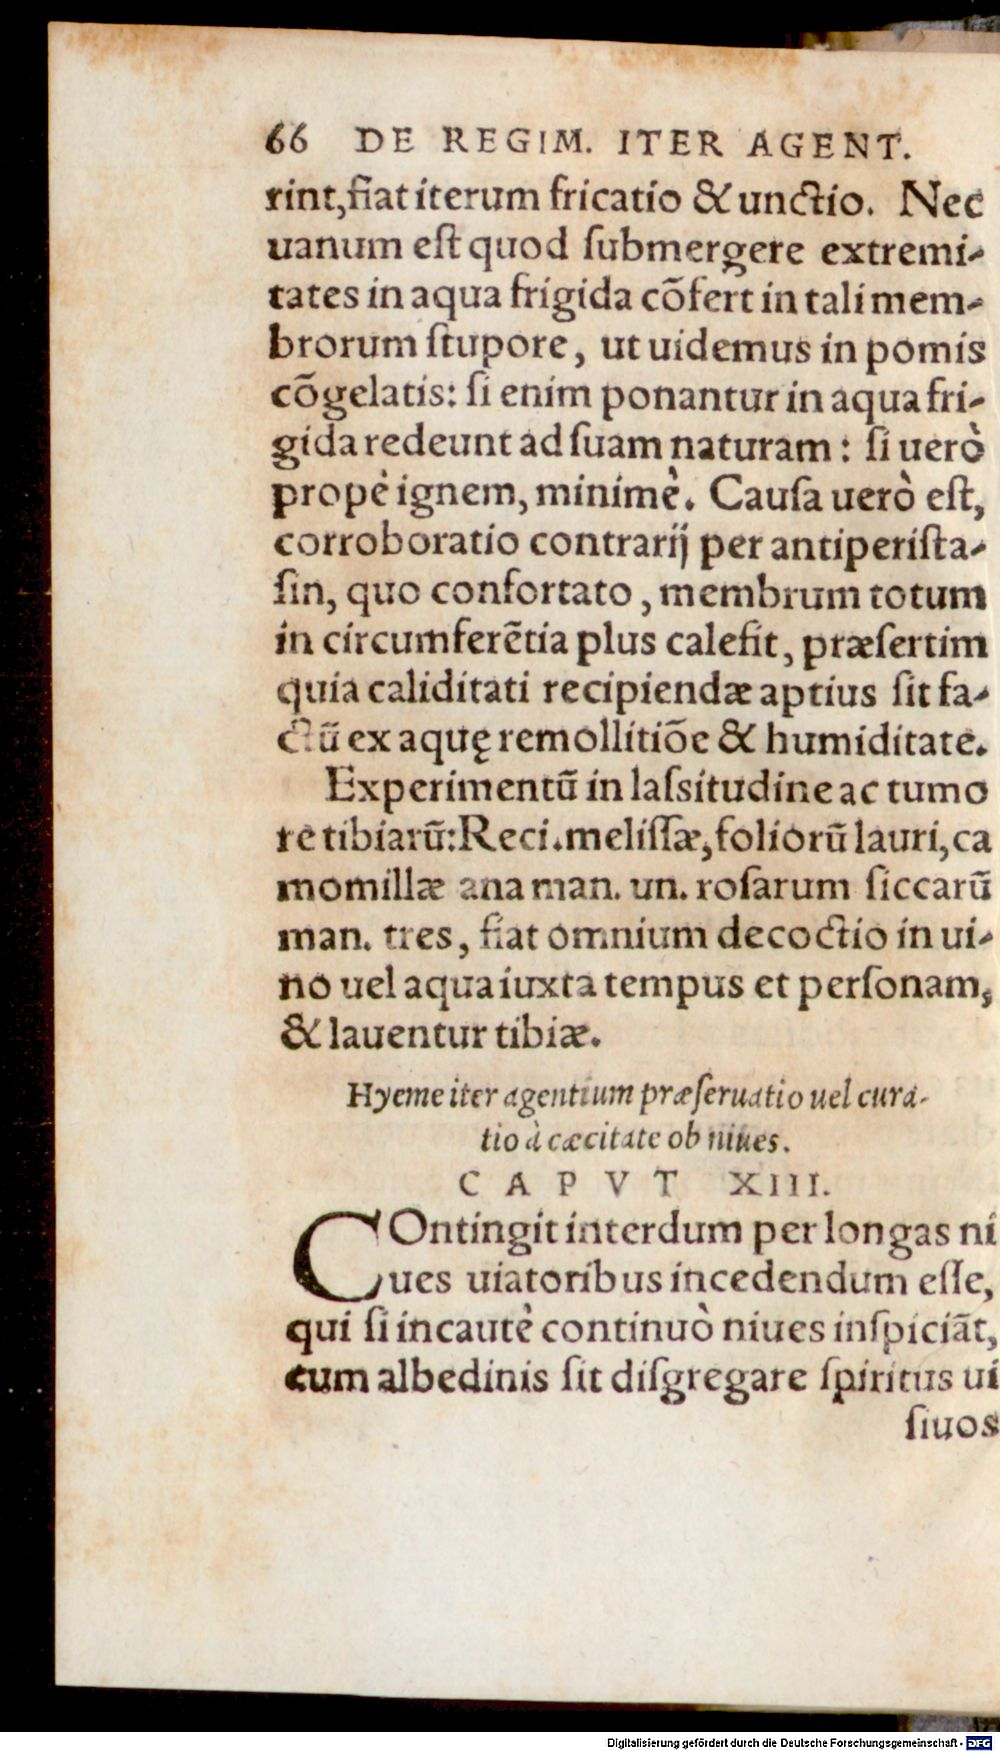 66 DE REGIM. ITER AGENT.
rint, fiat iterum fricatio & unctio. Nec
uanum eſt quod ſubmergere extremi-
tates in aqua frigida cõfert in tali mem-
brorum ſtupore, ut uidemus in pomis
cõgelatis: ſi enim ponantur in aqua fri-
gida redeunt ad ſuam naturam: ſi uerò
propè ignem, minimè. Cauſa uerò eſt,
corroboratio contrarij per antiperiſta-
ſin, quo confortato, membrum totum
in circumferẽtia plus calefit, præſertim
quia caliditati recipiendæ aptius ſit fa-
ctũ ex aquę remollitiõe & humiditate.
Experimentũ in laſsitudine ac tumo
re tibiarũ: Reci. meliſſæ, foliorũ lauri, ca
momillæ ana man. un. roſarum ſiccarũ
man. tres, fiat omnium decoctio in ui-
no uel aqua iuxta tempus et perſonam,
& lauentur tibiæ.
Hyeme iter agentium præſeruatio uel cura-
tio à cæcitate ob niues.
CAPVT XIII.
COntingit interdum per longas ni
ues uiatoribus incedendum eſſe,
qui ſi incautè continuò niues inſpiciãt,
cum albedinis ſit diſgregare ſpiritus ui
ſiuos
Digitalisierung gefördert durch die Deutsche Forschungsgemeinschaft - DFG